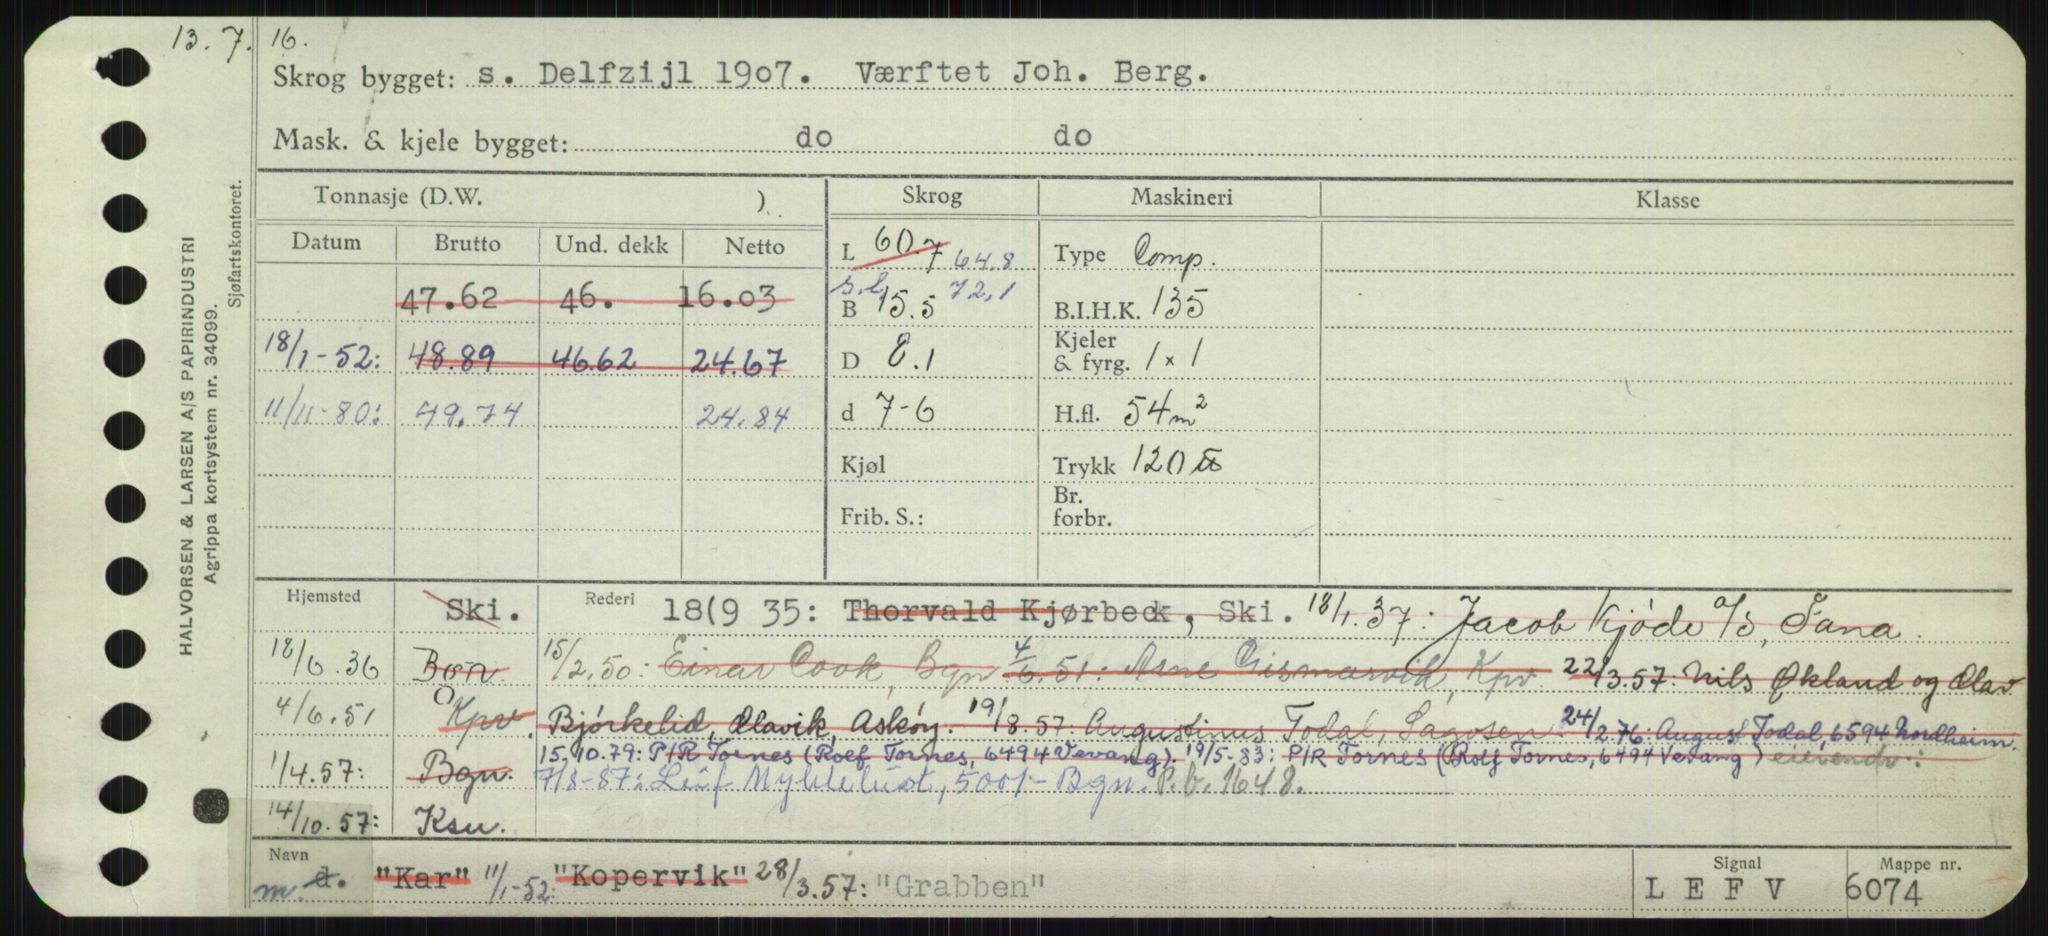 13. 7. 16.
Skrog bygget: s. Delfzijl 1907. Værftet Joh. Berg.
Mask. & kjele bygget: do do
HALVORSEN & LARSEN A/S PAPIRINDUSTRI
Agrippa kortsystem nr. 34099.
Sjøfartskontoret.
Tonnasje (D.W. ) Skrog Maskineri Klasse
Datum Brutto Und. dekk Netto
47.62 46. 16.03
18/1-52: 48.89 46.62 24.67
11/11-80: 49.74 24.84
L 60.7 64.8
s.l. 72,1
B 15.5
D 8.1
d 7-6
Kjøl
Frib. S.:
Type Comp.
B.I.H.K. 135
Kjeler & fyrg. 1 x 1
H.fl. 54 m2
Trykk 120
Br. forbr.
Hjemsted Ski. Rederi 18(9 35: Thorvald Kjørbeck, Ski. 18/1.37: Jacob Kjøde a/s,
18/6.36 Bgn 15/2.50: Einar Cook, Bgn 4/6.51: Arne Gismarvik, Kpv 22/3.57: Nils Økland og Olav
4/6.51 Kpv. Bjørkelid, Olavik, Askøy. 19/8.57: Augustinus Todal, 24/2.76: August Todal, 6594 Nordheim.
15.10.79: P/R Tornes (Rolf Tornes, 6494 Vevang). 19/5-83: P/R Tornes (Rolf Tornes, 6494 Vevang)
1/4.57: Bgn. 7/8-87: Leif Myklebust, 5001- Bgn. P.b. 1648.
14/10.57: Ksu.
Navn m. d. "Kar" 11/1-52: "Kopervik" 28/3.57: "Grabben"
Signal LEFV
Mappe nr. 6074